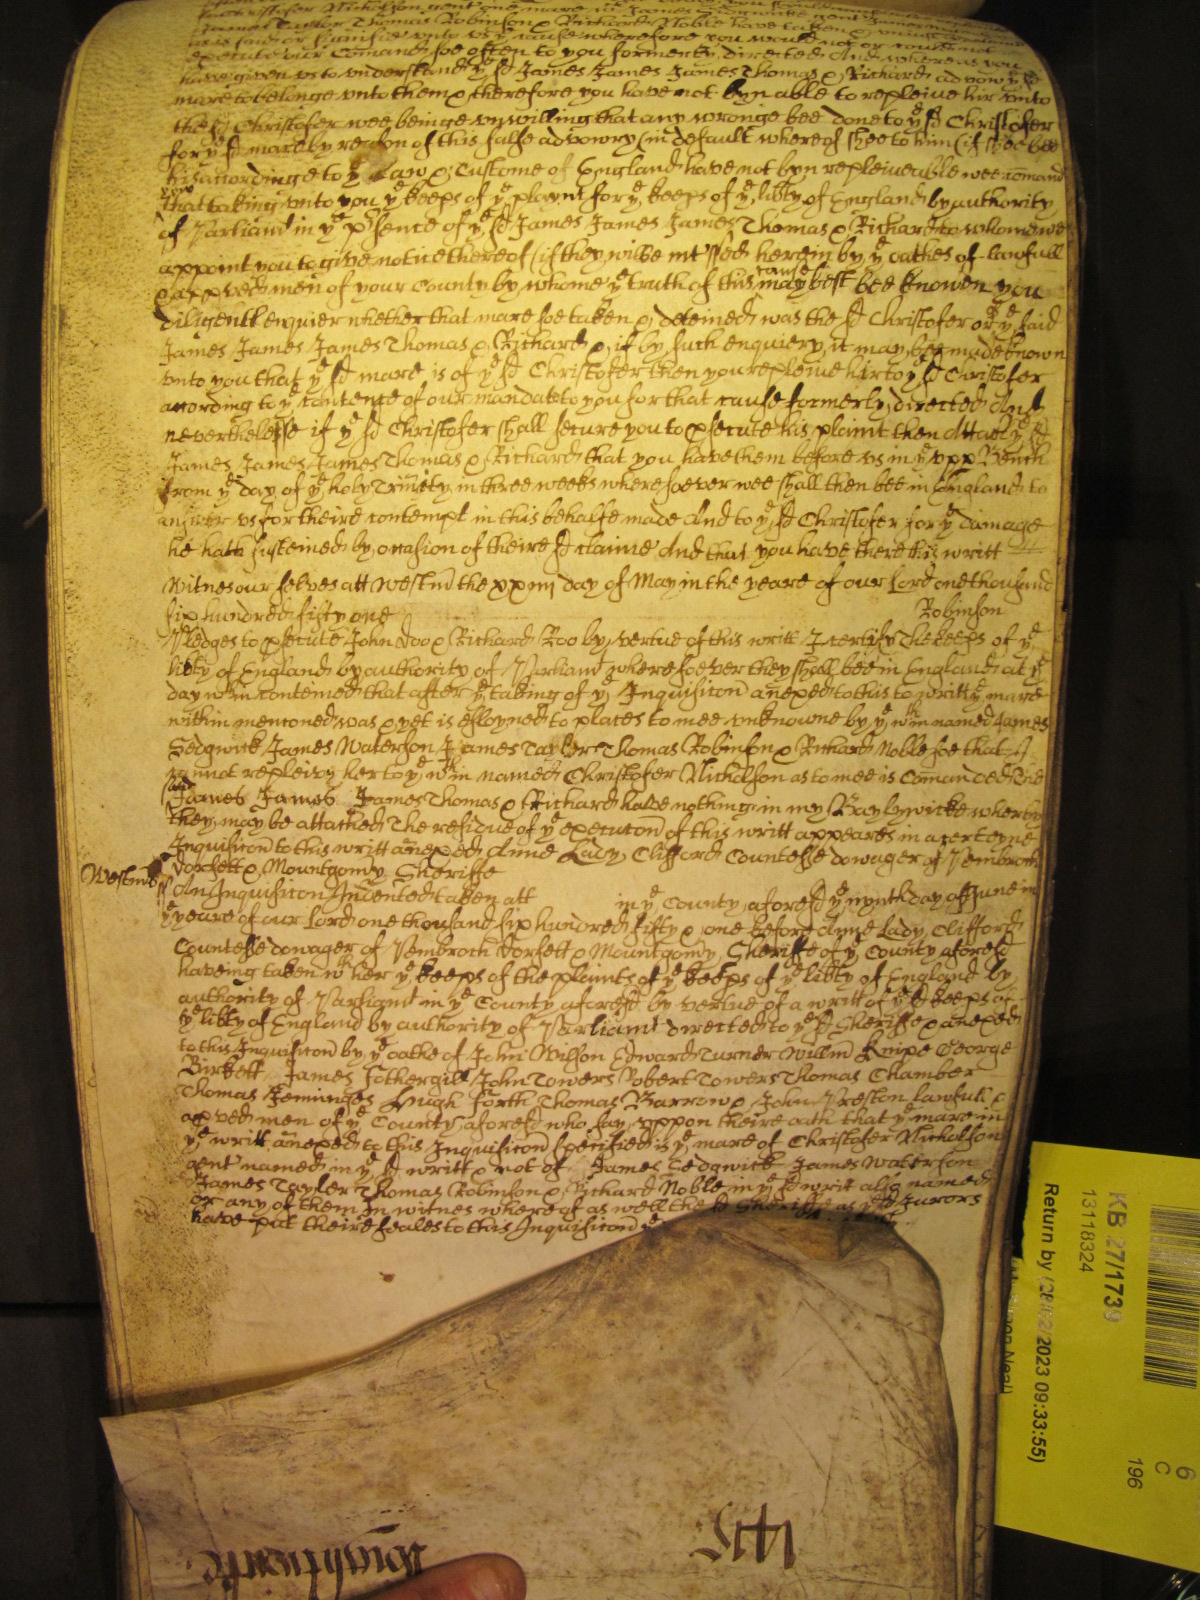 Christofer Nicholson gent one mare
James Tailor Thomas Robinson & Richard Noble have taken & uniustly
unto us ye cause wherefore you would not or could not
execute our Comand soe often to you formerly directed And whereas you
have given us to understand yt ye sd James James James Thomas & Richard advow ye sd
mare to belonge unto them & therefore you have not byn able to repleive hir unto
the sd Christofer wee beinge unwilling that any wronge bee done to ye sd Christofer
for ye sd mare by reason of this false advowry (in default whereof shee to him (if shee bee
his accordinge to ye Law & Custome of England have not byn repleiveable wee comand
you
that taking unto you ye keeps of ye playnt for ye keeps of ye libty of England by authority
of Parliamt in ye psence of ye sd James James James Thomas & Richard to whome wee
appoint you to give notice thereof (if they wilbe intssed herein by ye oathes of lawfull
cause
& appved men of your County by whome ye truth of this may best bee knowen you
diligentlie enquier whether that mare soe taken & deteined was the sd Christofer or ye said
James James James Thomas & Richard & if by such enquiery it may bee made known
unto you that ye sd mare is of ye sd Christofer then you repleive hir to ye sd Christofer
according to ye contente of our mandate to you for that cause formerly directed And
neverthelesse if ye sd Christofer shall secure you to psecute his plaint then Attach ye sd
James James James Thomas & Richard that you have them before us in ye upp Bench
from ye day of ye holy Trinity in three weeks wheresoever wee shall then bee in England to
answer us for theire contempt in this behalfe made And to ye sd Christofer for ye damage
he hath susteined by occasion of theire sd claime And that you have there this writt
Witnes our selves att Westm the xxiiij day of May in the yeare of our Lord one thousand
six hundred fifty one
Robinson
Pledges to psecute John Doo & Richard Roo by vertue of this writt I certify The keeps of ye
libty of England by authority of Parliamt wheresoever they shall bee in England at ye
day wthin contened that after ye taking of ye Inquisicon anexed to this to writt ye mare
within mentoned was & yet is esloyned to places to mee unknowne by ye wthin named James
Sedgwick James Waterson James Tayler Thomas Robinson & Richard Noble soe that I
cannot repleivy her to ye wthin named Christofer Nicholson as to mee is Comanded The
said
James James James Thomas & Richard have nothing in my Baylywicke wherby
they may be attached The residue of ye execucon of this writt appeares in a certeyne
Inquisicon to this writt anexed Anne Lady Clifford Countesse dowager of Pembrock
Dorsett & Mountgomy Sheriffe
Westmld ss An Inquisicon Indented taken att in ye County aforesd ye nynth day of June in
ye yeare of our Lord one thousand six hundred fifty & one before Anne Lady Clifford
Countesse dowager of Pembrock Dorsett & Mountgomy Sheriffe of ye County aforesd
haveing taken wth her ye keeps of the plaints of ye keeps of ye libty of England by
authority of Parliamt in ye County aforesd by vertue of a writt of ye sd keeps of
ye libty of England by authority of Parliamt directed to ye sd Sheriffe & anexed
to this Inquisicon by ye oathe of John Wilson Edward Turner Willm Knipe George
Birkett James Fothergill John Towers Robert Towers Thomas Chamber
Thomas Jenninges Hugh Forth Thomas Barrow & John Preston lawfull &
apved men of ye County aforesd who say uppon theire oath that ye mare in
ye writt anexed to this Inquisicon specified is ye mare of Christofer Nicholson
gent named in ye sd writt & not of James Sedgwick James Waterson
James Tayler Thomas Robinson & Richard Noble in ye sd writ also named
or any of them In witnes whereof as well the sd Sheriffe as ye sd Jurors
have put theire seales to this Inquisicon ye
KB 27/1739
13118324
Return by (28/02/2023 09:33:55)
6
C
196